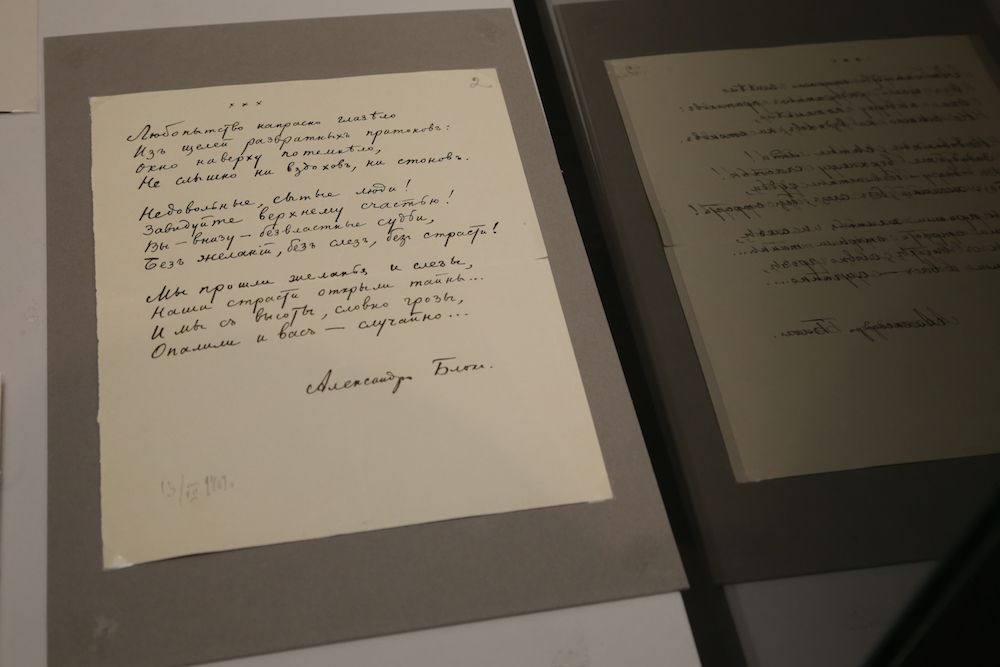 2
× × ×
Любопытство напрасно глазѣло
Изъ щелей развратныхъ притоновъ:
Окно наверху потемнѣло,
Не слышно ни вздоховъ, ни стоновъ.
Недовольные, сытые люди!
Завидуйте верхнему счастью!
Вы – внизу – безвластные судьи,
Безъ желаній, безъ слезъ, безъ страсти!
Мы прошли желанья и слезы,
Наши страсти открыли тайны...
И мы съ высоты, словно грозы,
Опалили и васъ – случайно...
Александръ Блок.